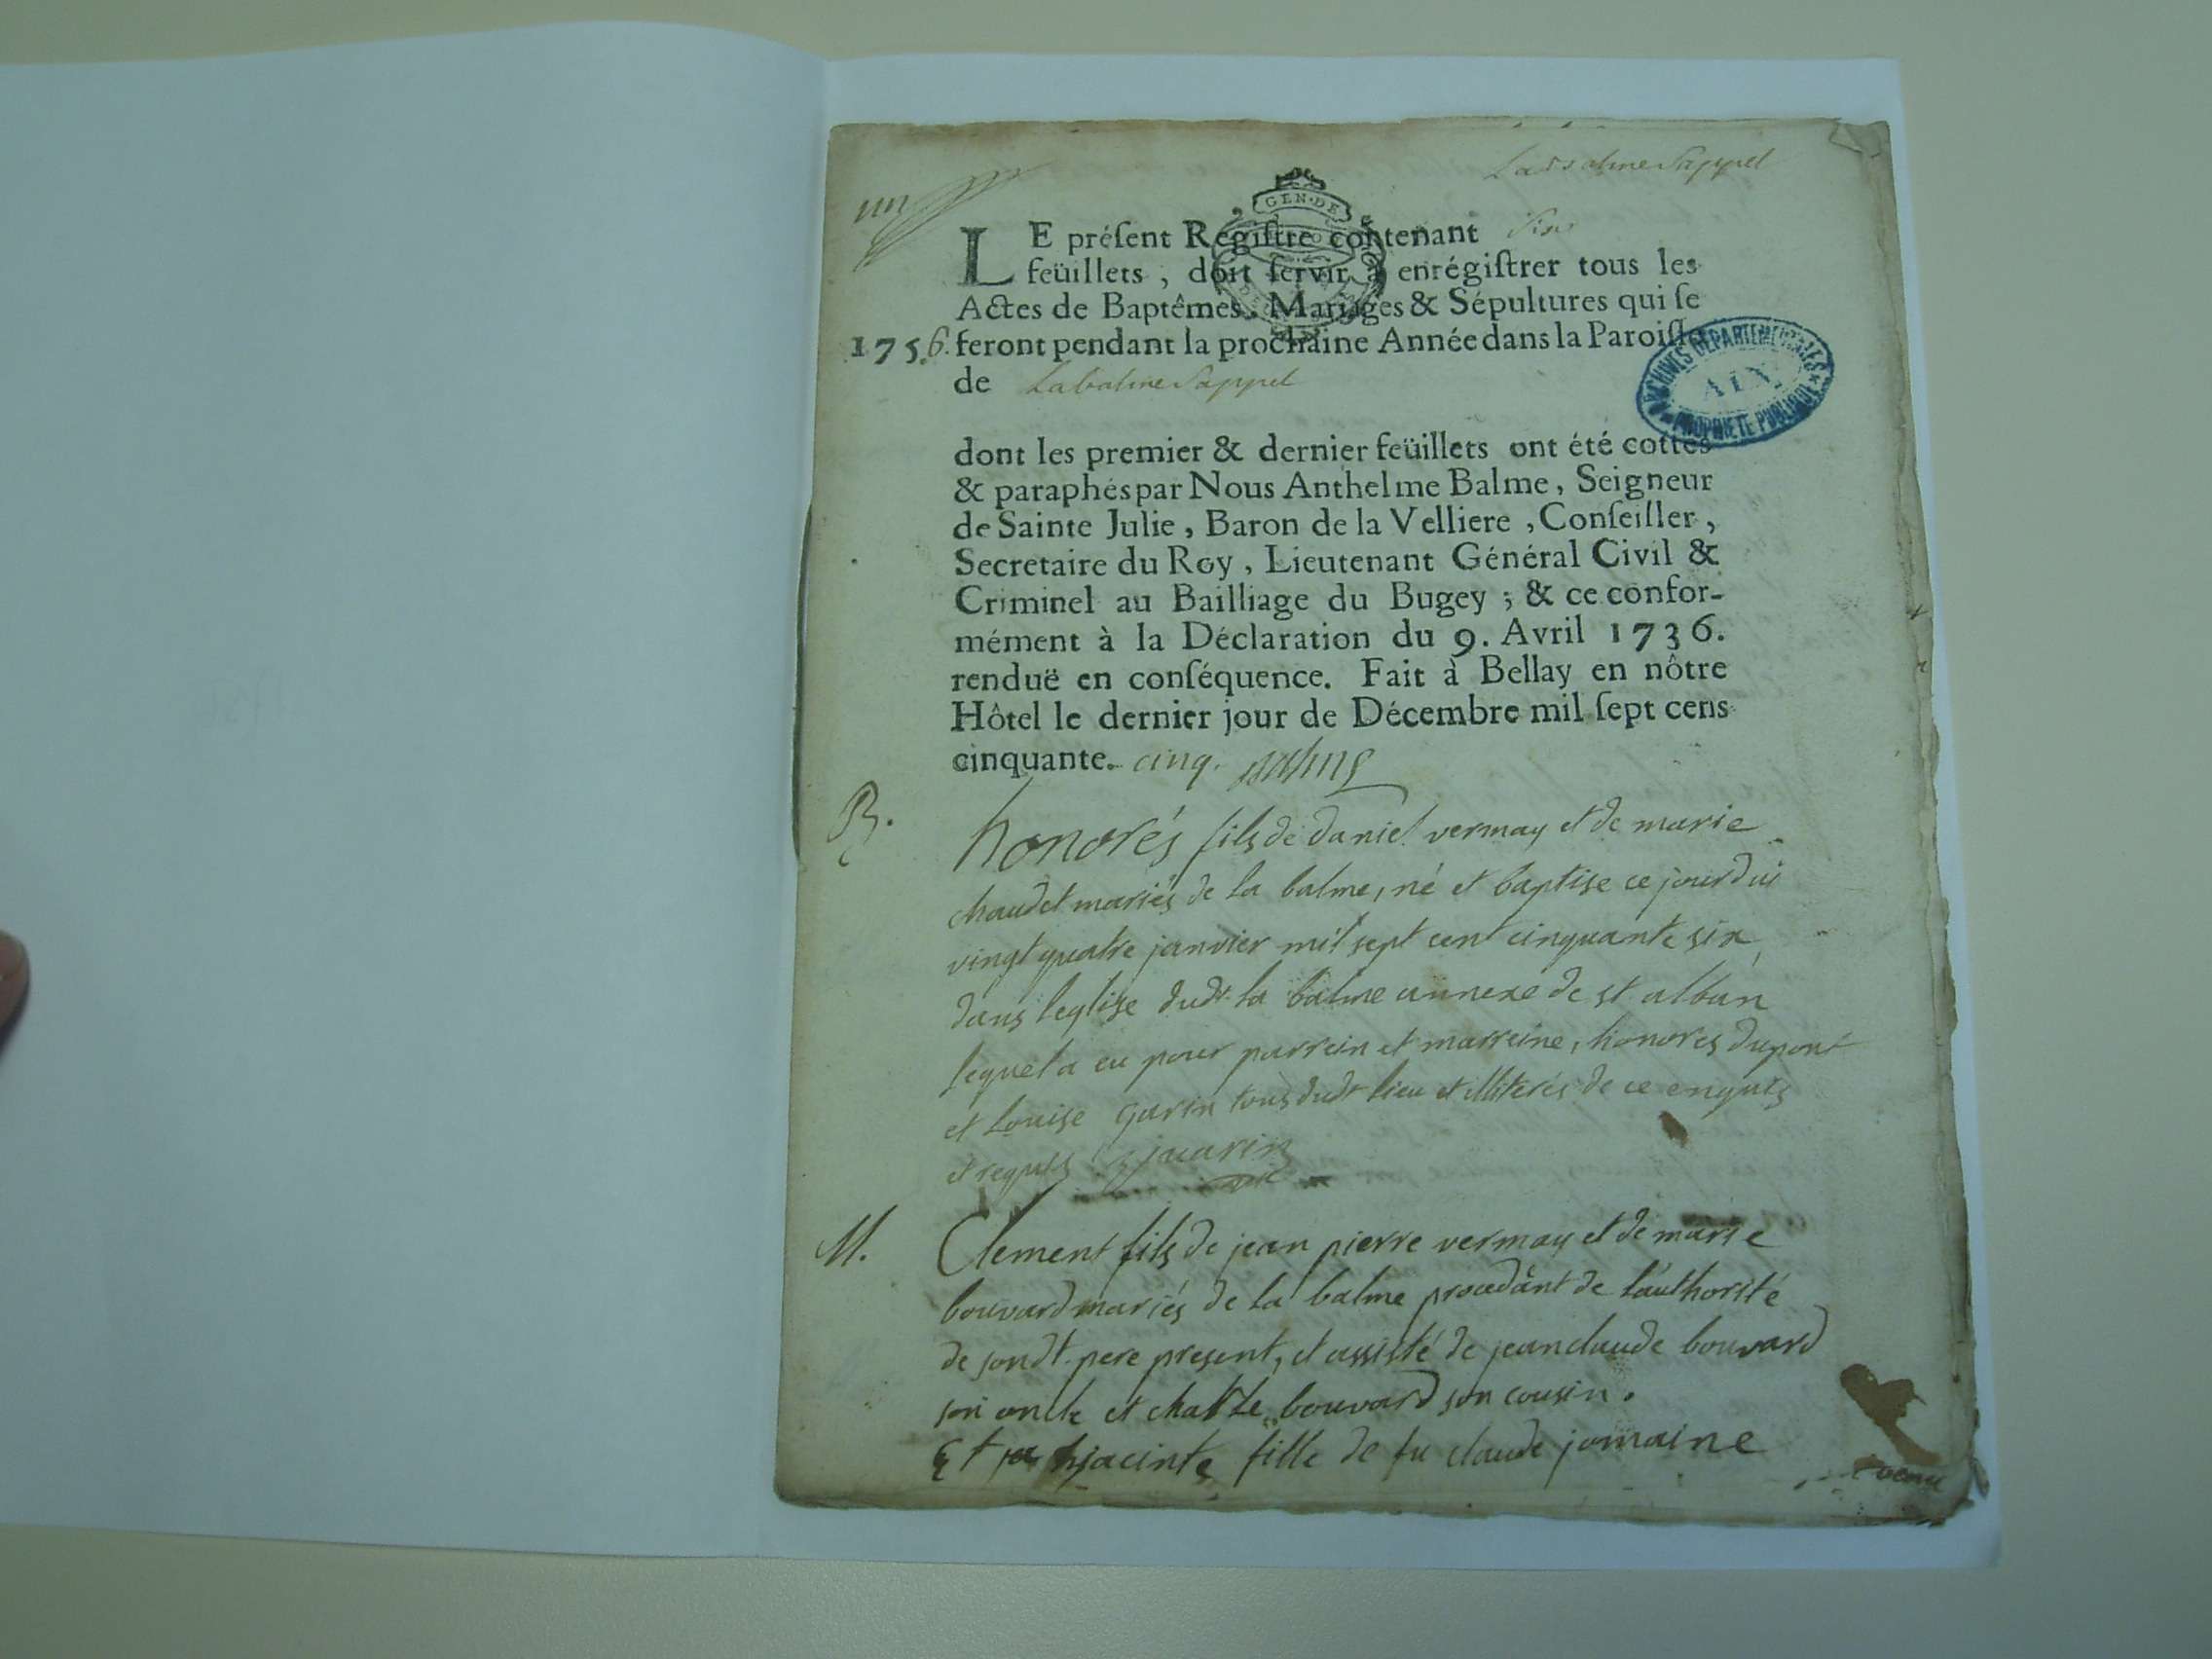 un
Labalme Sappel
GEN. DE
LE préſent Régiſtre contenant Six
feüillets, doit ſervir à enrégiſtrer tous les
Actes de Baptêmes, Mariages & Sépultures qui ſe
1756. feront pendant la prochaine Année dans la Paroiſſe
de Labalme Sappel
ARCHIVES DEPARTEMENTALES
AIN
PROPRIETE PUBLIQUE
dont les premier & dernier feüillets ont été cottés
& paraphés par Nous Anthelme Balme, Seigneur
de Sainte Julie, Baron de la Velliere, Conſeiller,
Secretaire du Roy, Lieutenant Général Civil &
Criminel au Bailliage du Bugey; & ce confor-
mément à la Déclaration du 9. Avril 1736.
renduë en conſéquence. Fait à Bellay en nôtre
Hôtel le dernier jour de Décembre mil ſept cens
cinquante. cinq. Balme
B.
honorés fils de daniel vermay et de marie
chaudet mariés de la balme, né et baptise ce jourdui
vingt quatre janvier mil sept cent cinquante six
dans leglise dudt la balme annexe de st alban
lequel a eu pour parrein et marreine, honores dupont
et Louise Garin tous dudt lieu et illiterés de ce enquis
et requis
M.
Clement fils de jean pierre vermay et de marie
bouvard mariés de la balme procedant de lauthorité
de sondt. pere present, et assisté de jean claude bouvard
son oncle et charle bouvard son cousin.
Et hjacinte fille de fu claude jomaine